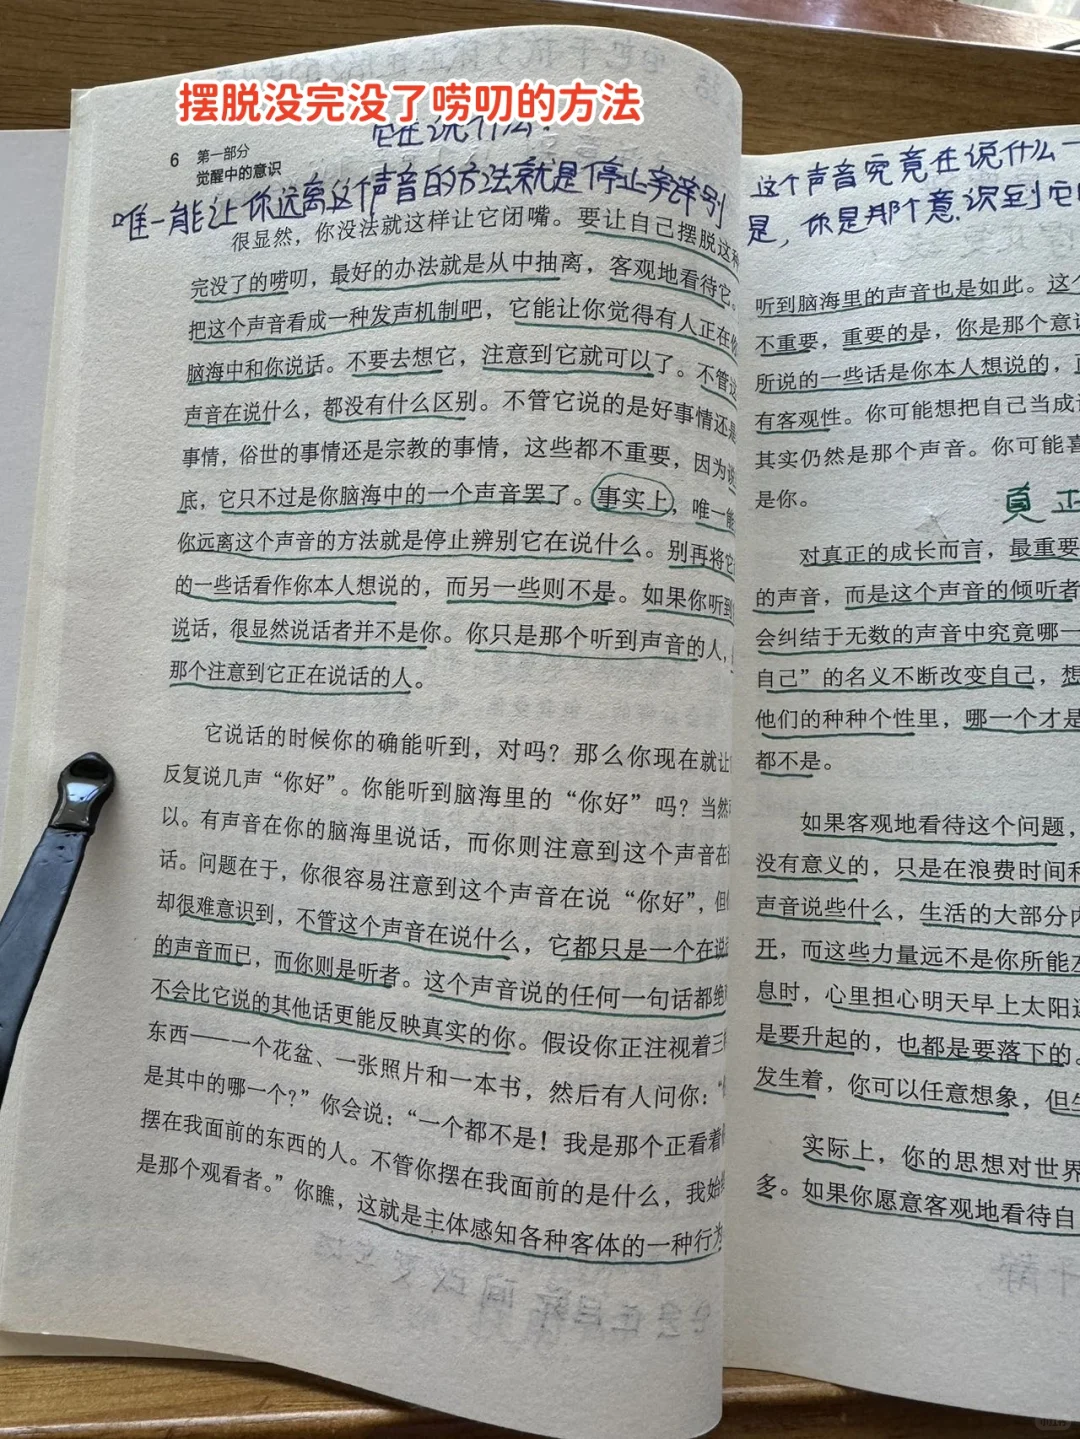 摆脱没完没了唠叨的方法
它在说什么？
6 第一部分
觉醒中的意识
唯一能让你远离这个声音的方法就是停止辨别
很显然，你没法就这样让它闭嘴。要让自己摆脱这种
完没了的唠叨，最好的办法就是从中抽离，客观地看待它。
把这个声音看成一种发声机制吧，它能让你觉得有人正在你
脑海中和你说话。不要去想它，注意到它就可以了。不管这
声音在说什么，都没有什么区别。不管它说的是好事情还是
事情，俗世的事情还是宗教的事情，这些都不重要，因为说
底，它只不过是你脑海中的一个声音罢了。事实上，唯一能
你远离这个声音的方法就是停止辨别它在说什么。别再将它
的一些话看作你本人想说的，而另一些则不是。如果你听到
说话，很显然说话者并不是你。你只是那个听到声音的人，
那个注意到它正在说话的人。
它说话的时候你的确能听到，对吗？那么你现在就让
反复说几声“你好”。你能听到脑海里的“你好”吗？当然
以。有声音在你的脑海里说话，而你则注意到这个声音在
话。问题在于，你很容易注意到这个声音在说“你好”，但
却很难意识到，不管这个声音在说什么，它都只是一个在说
的声音而已，而你则是听者。这个声音说的任何一句话都绝
不会比它说的其他话更能反映真实的你。假设你正注视着三
东西——一个花盆、一张照片和一本书，然后有人问你：“
是其中的哪一个？”你会说：“一个都不是！我是那个正看着
摆在我面前的东西的人。不管你摆在我面前的是什么，我始
是那个观看者。”你瞧，这就是主体感知各种客体的一种行为
这个声音究竟在说什么
是，你是那个意识到它
听到脑海里的声音也是如此。这个
不重要，重要的是，你是那个意
所说的一些话是你本人想说的，
有客观性。你可能想把自己当成
其实仍然是那个声音。你可能喜
是你。
真正
对真正的成长而言，最重要
的声音，而是这个声音的倾听者
会纠结于无数的声音中究竟哪一
自己”的名义不断改变自己，想
他们的种种个性里，哪一个才是
都不是。
如果客观地看待这个问题，
没有意义的，只是在浪费时间和
声音说些什么，生活的大部分内
开，而这些力量远不是你所能左
息时，心里担心明天早上太阳
是要升起的，也都是要落下的。
发生着，你可以任意想象，但
实际上，你的思想对世界
多。如果你愿意客观地看待自